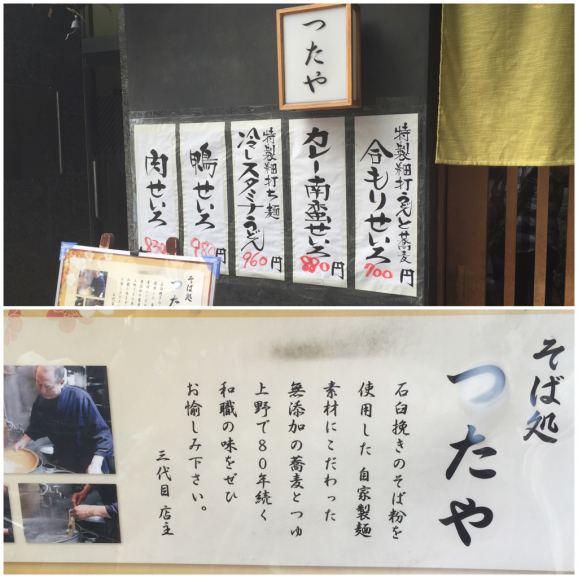 つたや
特製細打うどんと蕎麦
合もりせいろ
700円
カレー南蛮せいろ
880円
特製細打ち麺
冷しスタミナうどん
960円
鴨せいろ
円
肉せいろ
円
そば処
つたや
そば処
つたや
石臼挽きのそば粉を
使用した自家製麺
素材にこだわった
無添加の蕎麦とつゆ
上野で80年続く
和職の味をぜひ
お愉しみ下さい。
三代目 店主